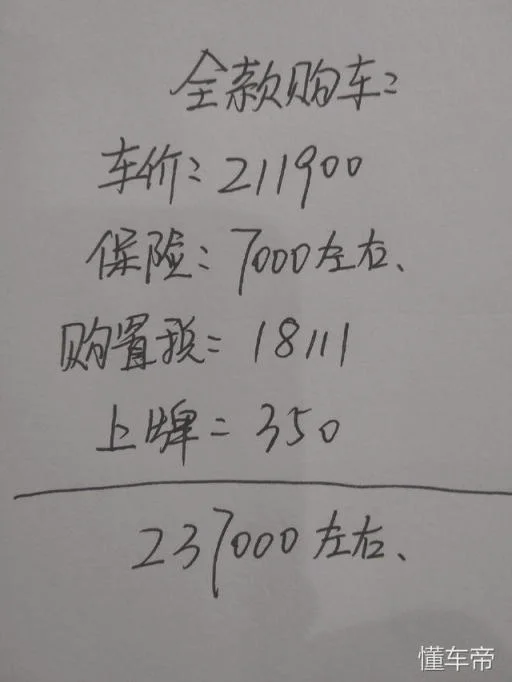 全款购车:
车价:211900
保险:7000左右、
购置税:18111
上牌:350
237000左右、
懂车帝